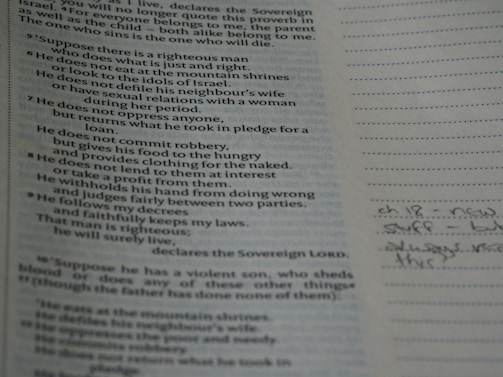 as I live, declares the Sovereign
you will no longer quote this proverb in
Israel. 4 For everyone belongs to me, the parent
as well as the child – both alike belong to me.
The one who sins is the one who will die.
5 ‘Suppose there is a righteous man
who does what is just and right.
6 He does not eat at the mountain shrines
or look to the idols of Israel.
He does not defile his neighbour’s wife
or have sexual relations with a woman
during her period.
7 He does not oppress anyone,
but returns what he took in pledge for a
loan.
He does not commit robbery,
but gives his food to the hungry
and provides clothing for the naked.
8 He does not lend to them at interest
or take a profit from them.
He withholds his hand from doing wrong
and judges fairly between two parties.
9 He follows my decrees
and faithfully keeps my laws.
That man is righteous;
he will surely live,
declares the Sovereign LORD.
10 ‘Suppose he has a violent son, who sheds
blood or does any of these other things
11 (though the father has done none of them):
‘He eats at the mountain shrines.
He defiles his neighbour’s wife.
12 He oppresses the poor and needy.
He commits robbery.
He does not return what he took in
pledge.
ch 18 – new
stuff – but
always
this